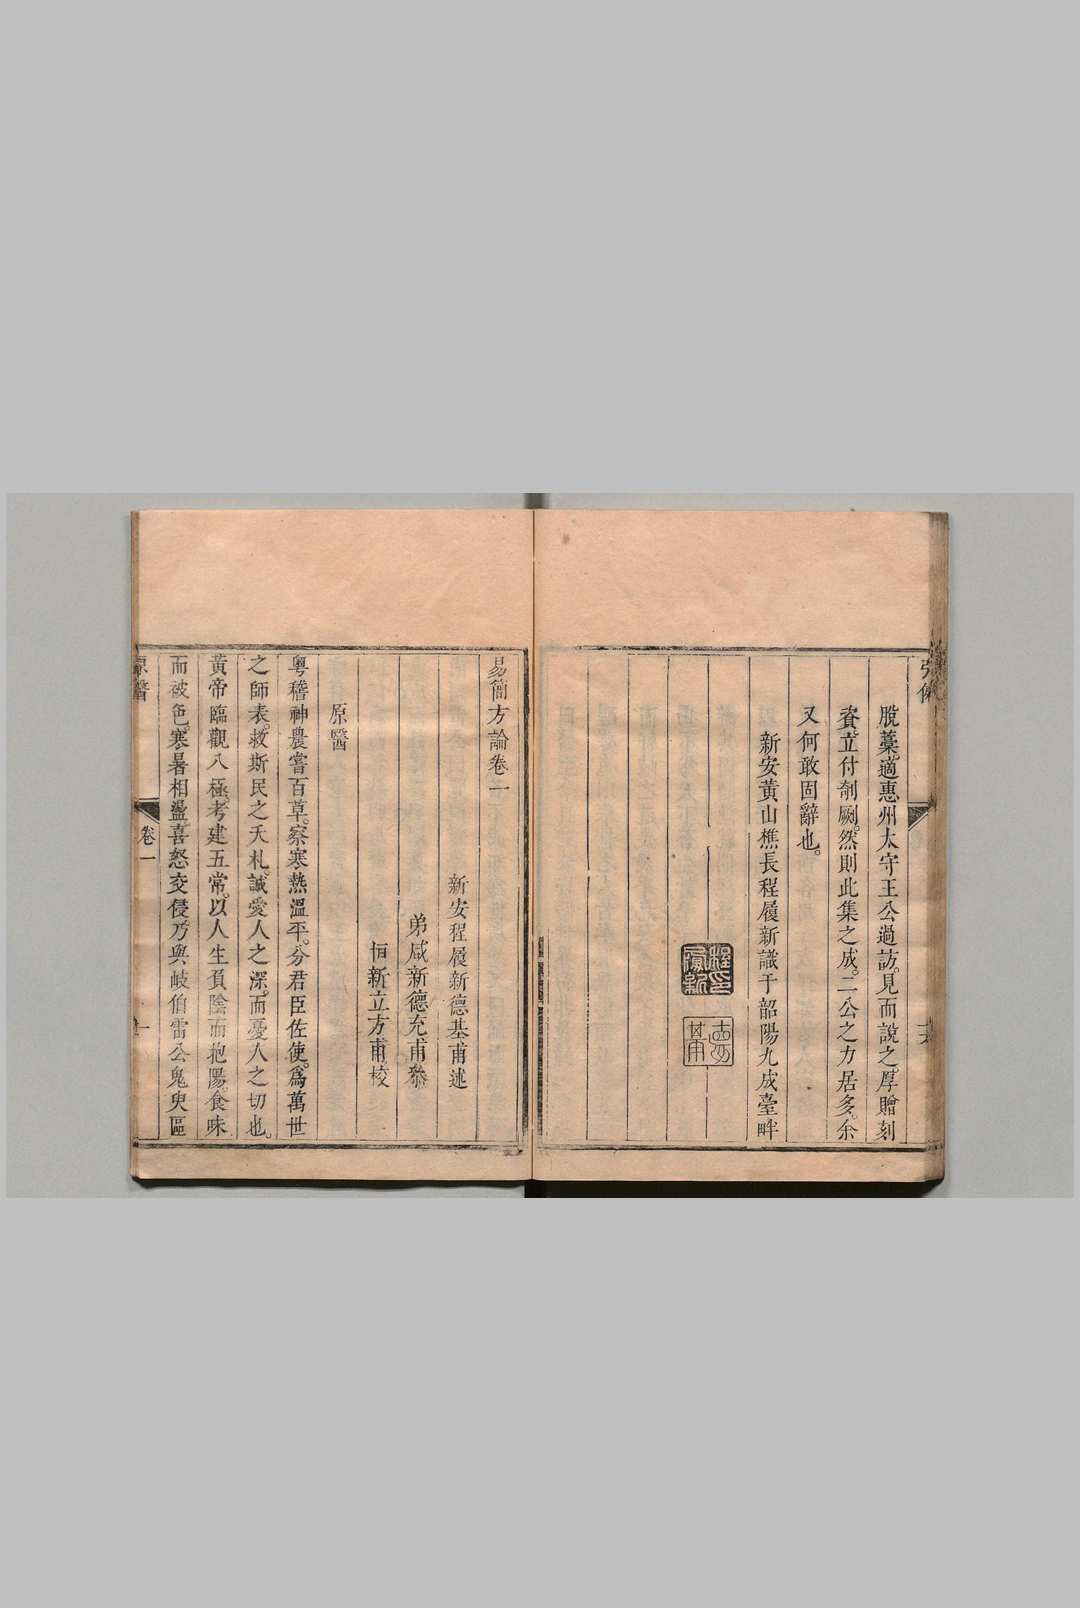 脫藁。適惠州太守王公過訪。見而說之。厚贈刻
資。立付剞劂。然則此集之成。二公之力居多。余
又何敢固辭也。
新安黃山樵長程履新識于韶陽九成臺畔
程履新印
易簡方論卷一
新安程履新德基甫述
弟咸新德充甫叅
恒新立方甫校
原醫
粵稽神農嘗百草。察寒熱溫平。分君臣佐使。爲萬世
之師表。救斯民之夭札。誠愛人之深。而憂人之切也。
黃帝臨觀八極。考建五常。以人生負陰而抱陽。食味
而被色。寒暑相盪。喜怒交侵。乃與岐伯雷公鬼臾區
原醫
卷一
一